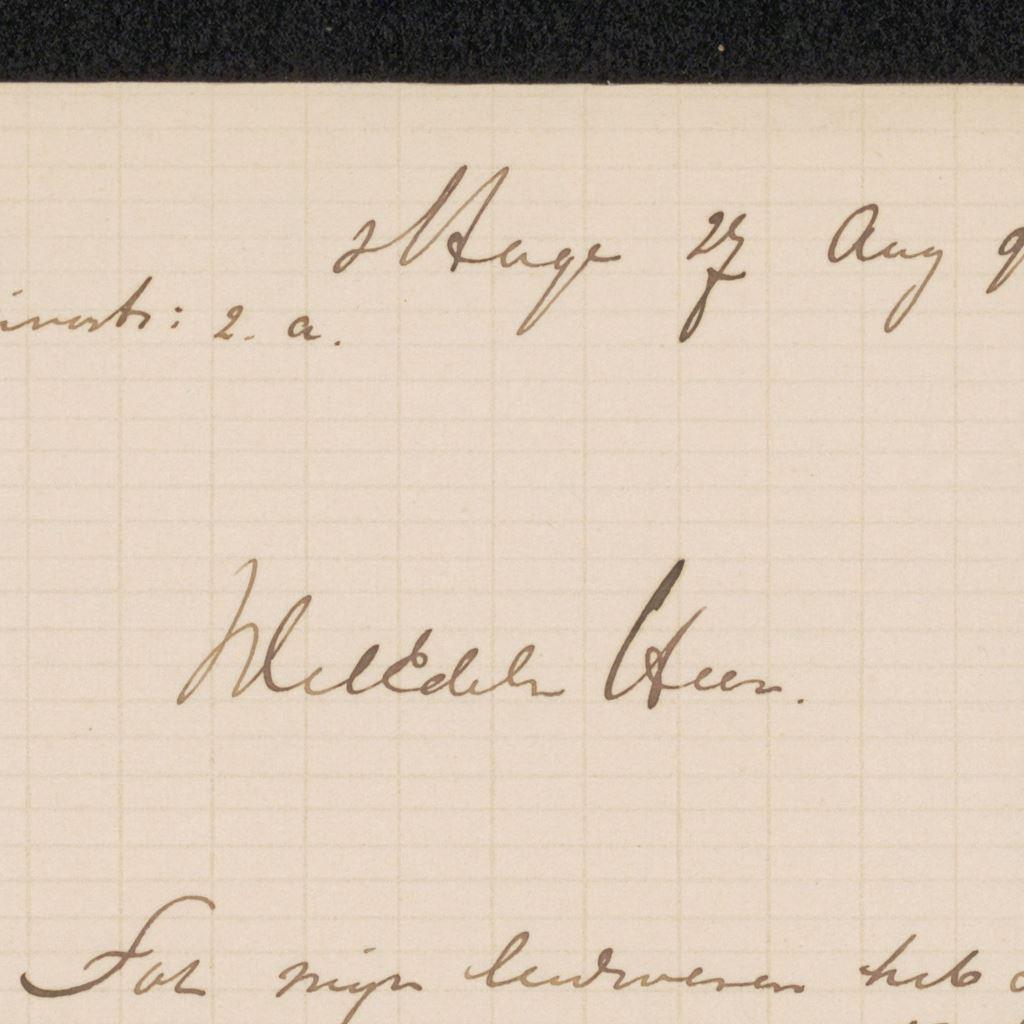 s Hage 27 Aug 9
: 2. a.
WelEdele Heer.
Tot mijn leedwezen heb